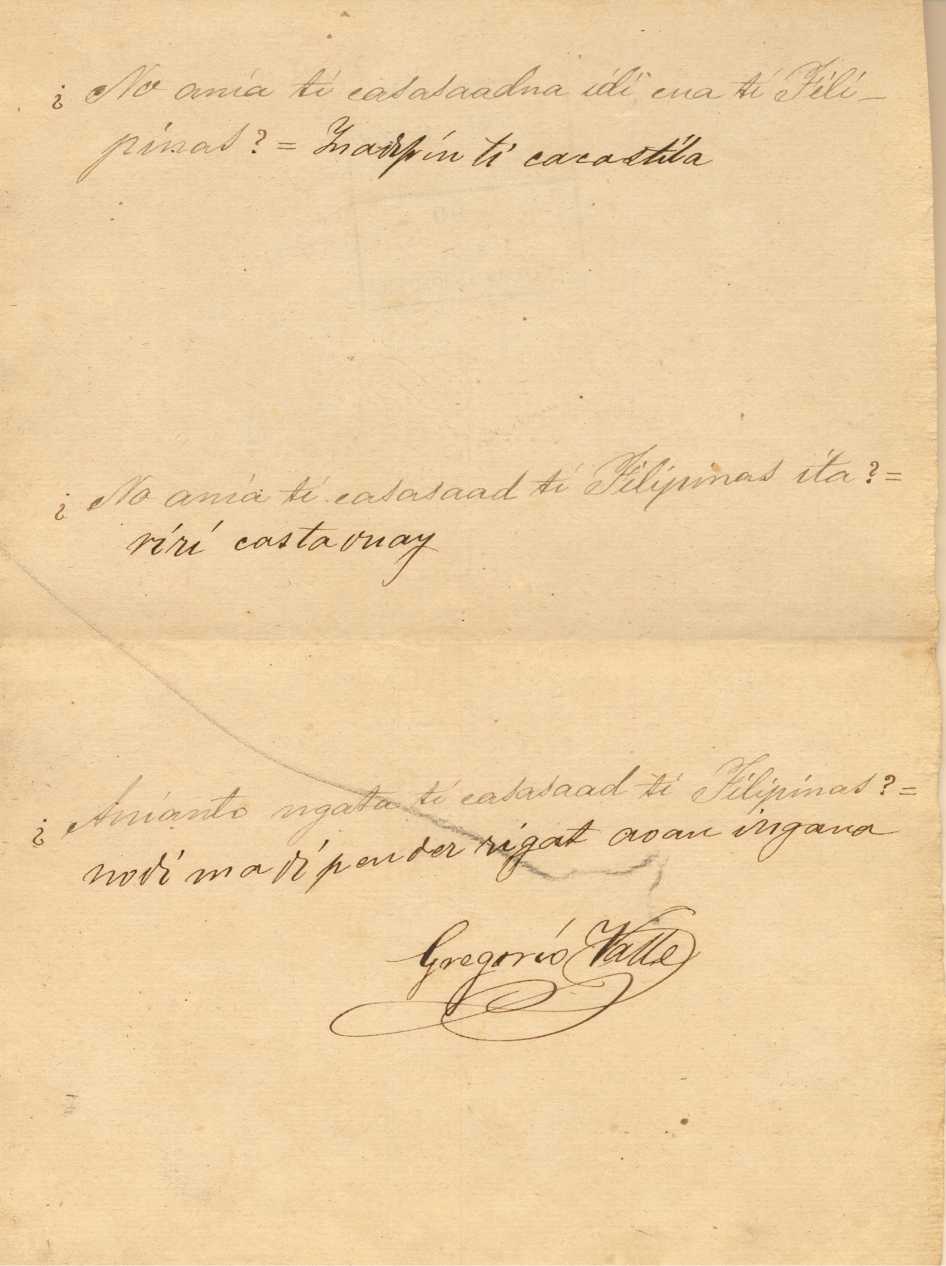 ¿ No anía ti casasaadna idi cua ti Fili-
pinas? = Inadipin ti cacastila
¿ No anía ti casasaad ti Filipinas ita? =
riri casta onay
¿ Anianto ngata ti casasaad ti Filipinas? =
nodi madipender rigat aoan ingana
Gregorio Valle